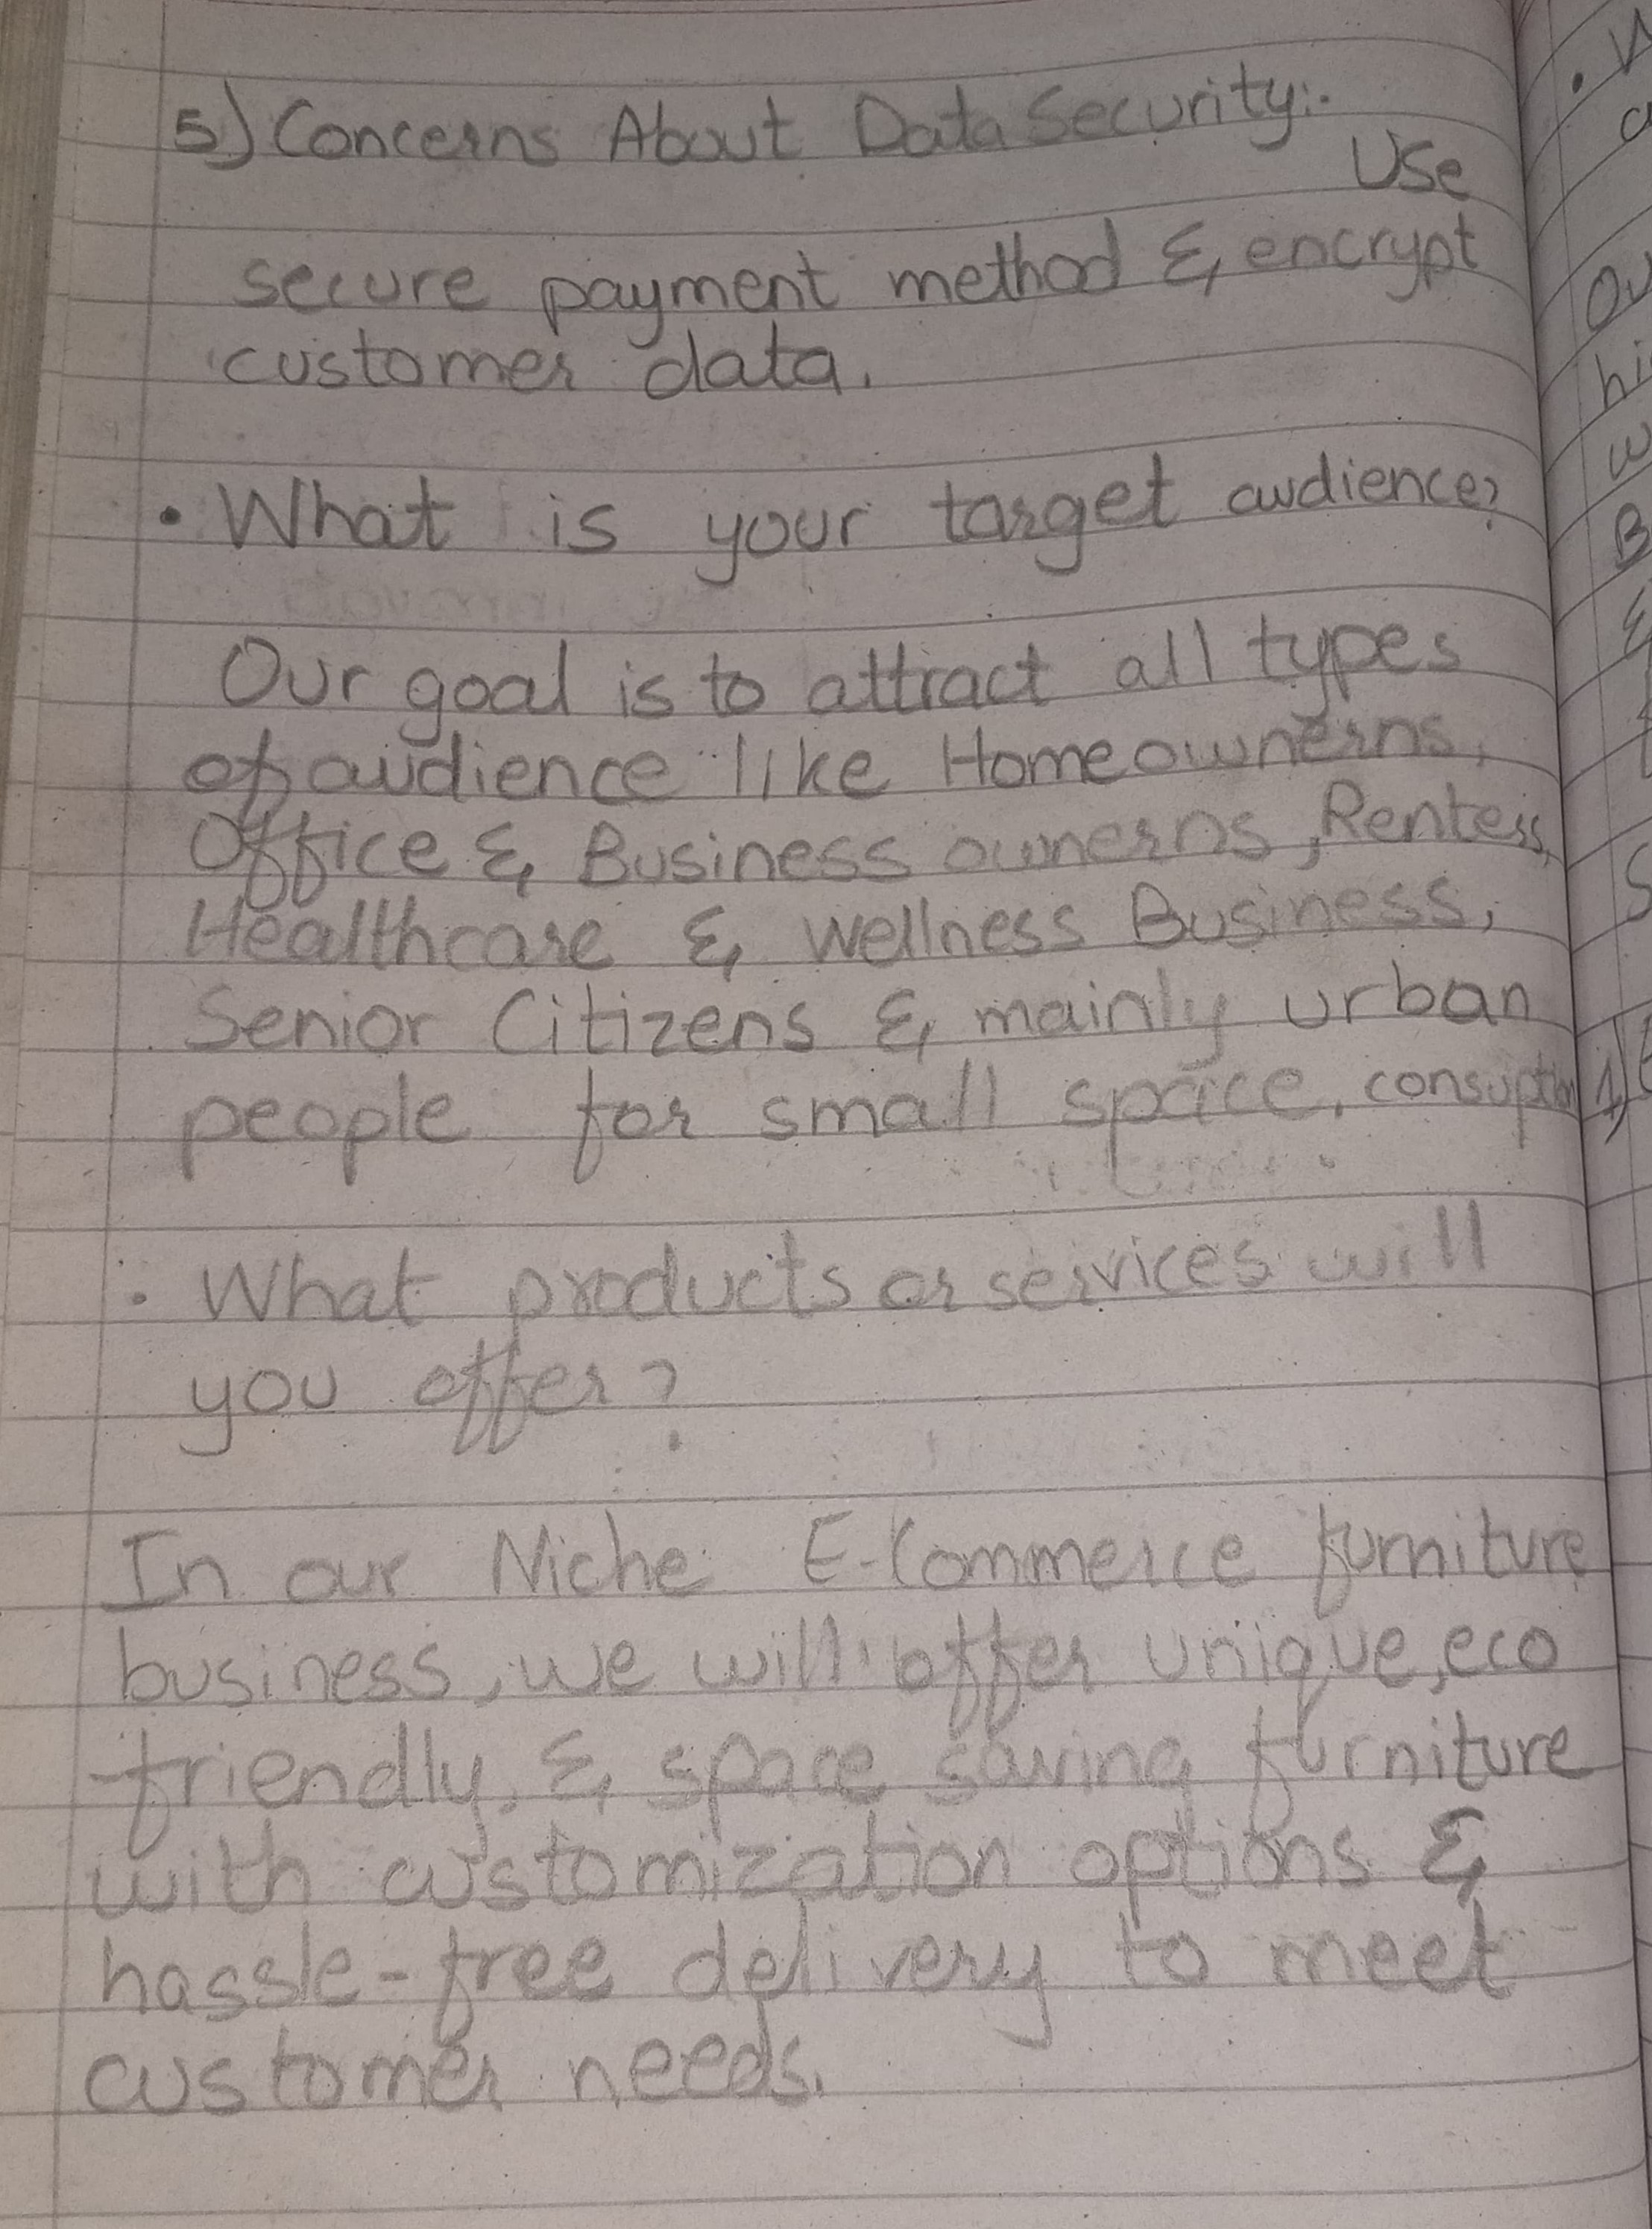 5) Concerns About Data Security:-
Use
secure payment method & encrypt
customer data.
• What is your target audience?
Our goal is to attract all types
of audience like Homeownerns,
Office & Business ownerns, Renters,
Healthcare & Wellness Business,
Senior Citizens & mainly urban
people for small space. consuption
• What products or services will
you offer?
In our Niche E-Commerce furniture
business, we will offer unique, eco
friendly, & space saving furniture
with customization options &
hassle-free delivery to meet
customer needs.